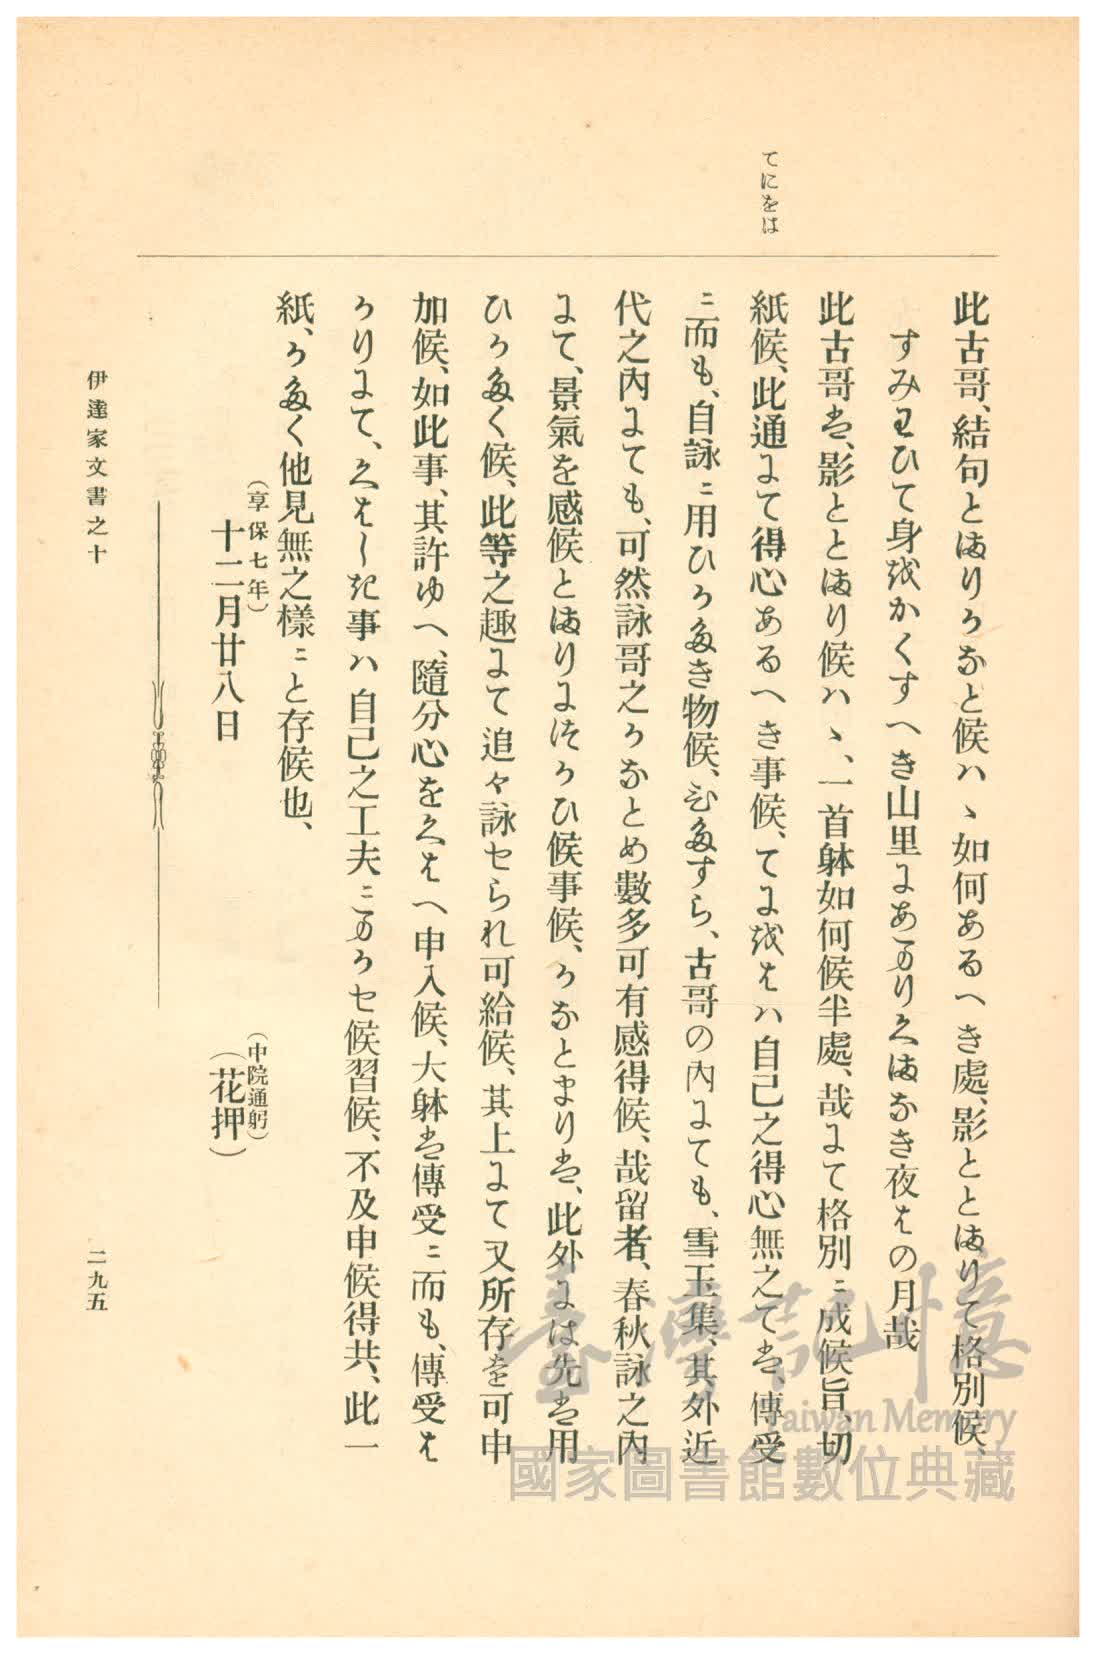 てにをは
此古哥、結句とはりうなと候ハゝ如何あるへき處、影ととはりて格別候、
すみわひて身をかくすへき山里にあまりくはなき夜はの月哉
此古哥は、影ととはり候ハゝ、一首躰如何候半處、哉にて格別ニ成候旨、切
紙候、此通にて得心あるへき事候、てにをはハ自己之得心無之ては、傳受
ニ而も、自詠ニ用ひかたき物候、ひたすら、古哥の内にても、雪玉集、其外近
代之内にても、可然詠哥之かなとめ數多可有感得候、哉留者、春秋詠之内
にて、景氣を感候とはりにつかひ候事候、かなとまりは、此外には先は用
ひかたく候、此等之趣にて追々詠セられ可給候、其上にて又所存を可申
加候、如此事、其許ゆへ、隨分心をくはへ申入候、大躰は傳受ニ而も、傳受は
かりにて、くはしき事ハ自己之工夫ニまかセ候習候、不及申候得共、此一
紙、かたく他見無之樣ニと存候也、
（享保七年）
十二月廿八日
（中院通躬）
（花押）
伊達家文書之十
二九五
臺灣記憶
Taiwan Memory
國家圖書館數位典藏